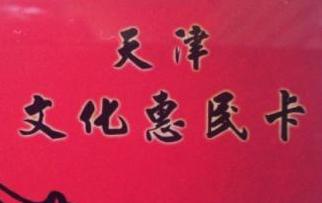 天津
文化惠民卡